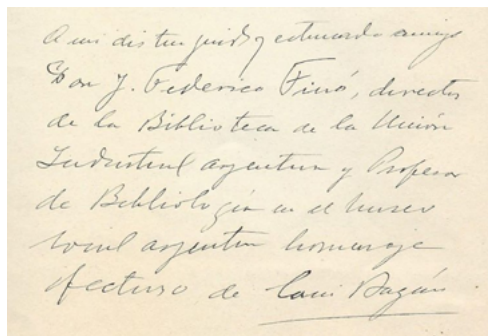 A mi distinguido y estimado amigo
Don J. Federico Finó, director
de la Biblioteca de la Unión
Industrial argentina y Profesor
de Bibliología en el museo
social argentino homenaje
afectuoso de